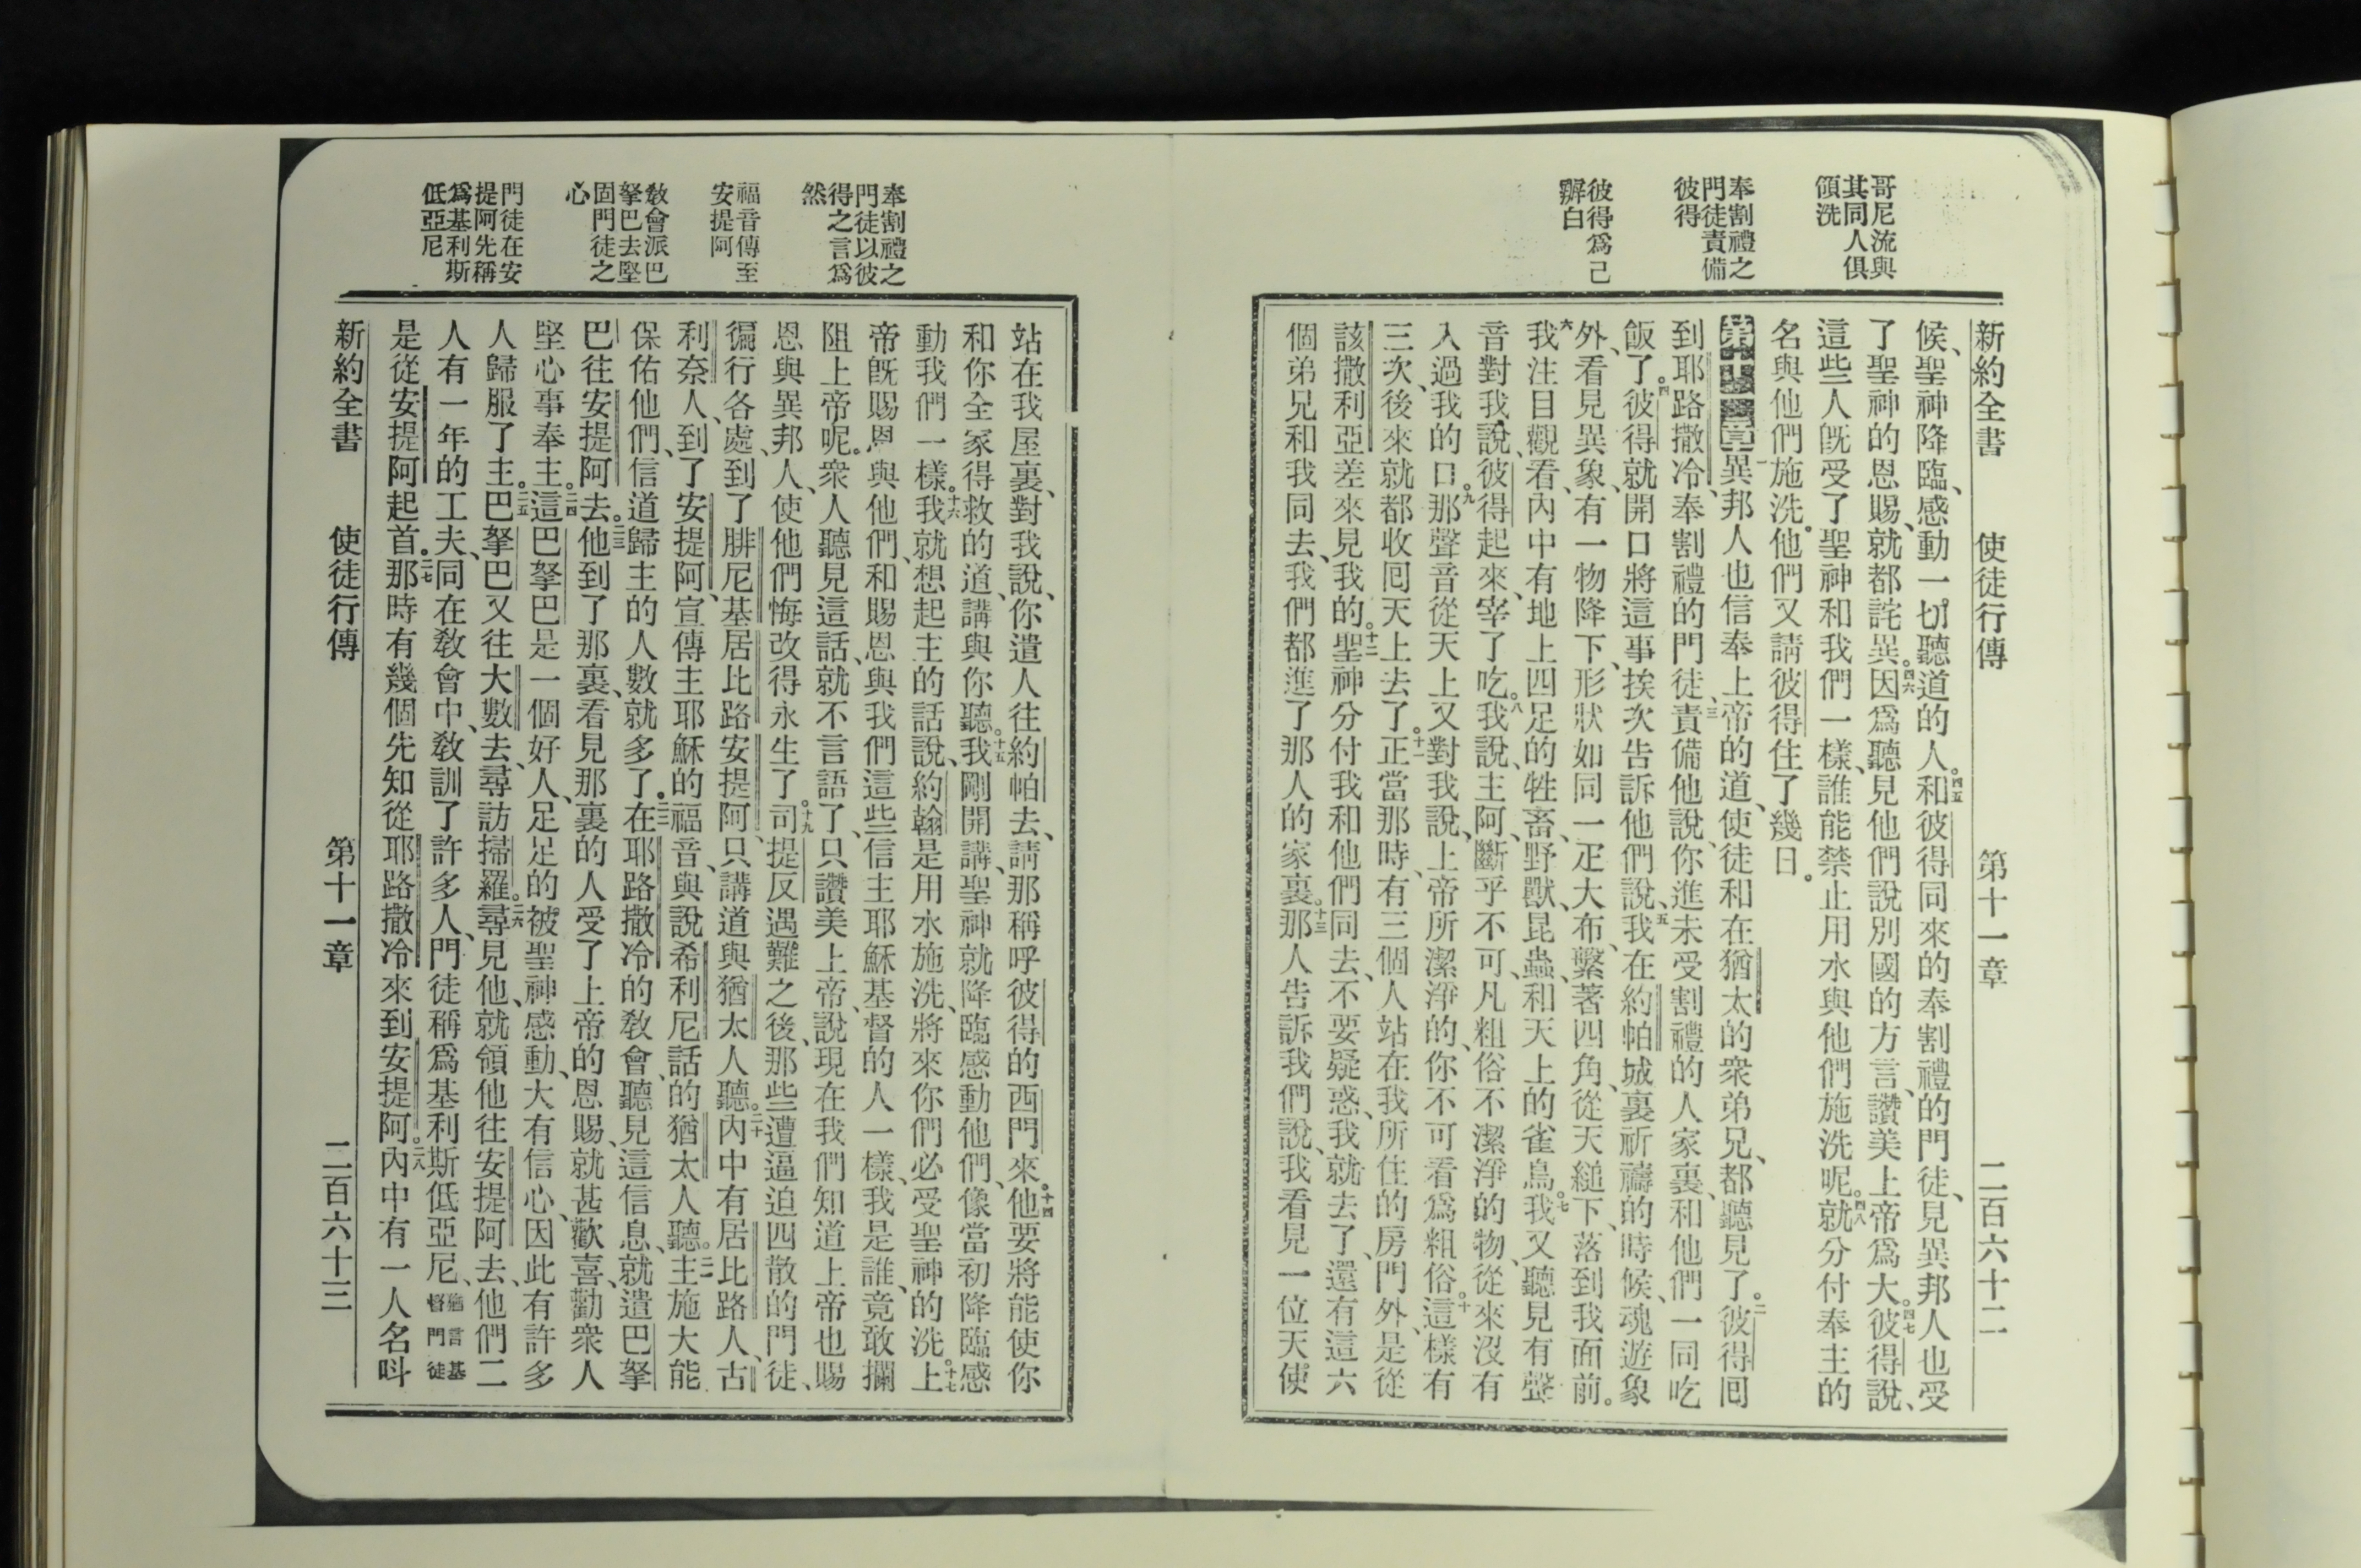 哥尼流與
其同人俱
領洗
奉割禮之
門徒責備
彼得
彼得爲己
辨白
新約全書 使徒行傳 第十一章 二百六十二
候、聖神降臨、感動一切聽道的人。四五和彼得同來的奉割禮的門徒、見異邦人也受
了聖神的恩賜、就都詫異。四六因爲聽見他們說別國的方言、讚美上帝爲大。四七彼得說、
這些人旣受了聖神和我們一樣、誰能禁止用水與他們施洗呢。四八就分付奉主的
名與他們施洗。他們又請彼得住了幾日。
第十一章一異邦人也信奉上帝的道、使徒和在猶太的衆弟兄、都聽見了。二彼得囘
到耶路撒冷、奉割禮的門徒、三責備他說、你進未受割禮的人家裏、和他們一同吃
飯了。四彼得就開口將這事挨次告訴他們說、五我在約帕城裏祈禱的時候、魂遊象
外、看見異象、有一物降下、形狀如同一疋大布、繫著四角、從天縋下、落到我面前。
六我注目觀看、內中有地上四足的牲畜、野獸、昆蟲、和天上的雀鳥。七我又聽見有聲
音對我說、彼得起來、宰了吃。八我說、主阿、斷乎不可、凡粗俗不潔淨的物、從來沒有
入過我的口。九那聲音從天上又對我說、上帝所潔淨的、你不可看爲粗俗。十這樣有
三次、後來就都收囘天上去了。十一正當那時、有三個人站在我所住的房門外、是從
該撒利亞差來見我的。十二聖神分付我和他們同去、不要疑惑、我就去了、還有這六
個弟兄和我同去、我們都進了那人的家裏。十三那人告訴我們說、我看見一位天使
奉割禮之
門徒以彼
得之言爲
然
福音傳至
安提阿
敎會派巴
拏巴去堅
固門徒之
心
門徒在安
提阿先稱
爲基利斯
低亞尼
站在我屋裏、對我說、你遣人往約帕去、請那稱呼彼得的西門來。十四他要將能使你
和你全家得救的道、講與你聽。十五我剛開講、聖神就降臨感動他們、像當初降臨感
動我們一樣。十六我就想起主的話說、約翰是用水施洗、將來你們必受聖神的洗。十七上
帝旣賜恩與他們、和賜恩與我們這些信主耶穌基督的人一樣、我是誰、竟敢攔
阻上帝呢。衆人聽見這話、就不言語了、只讚美上帝、說、現在我們知道上帝也賜
恩與異邦人、使他們悔改得永生了。十九司提反遇難之後、那些遭逼迫四散的門徒、
徧行各處、到了腓尼基居比路安提阿、只講道與猶太人聽。二十內中有居比路人、古
利奈人、到了安提阿、宣傳主耶穌的福音、與說希利尼話的猶太人聽。二一主施大能
保佑他們、信道歸主的人數就多了。二二在耶路撒冷的敎會、聽見這信息、就遣巴拏
巴往安提阿去。二三他到了那裏、看見那裏的人受了上帝的恩賜、就甚歡喜、勸衆人
堅心事奉主。二四這巴拏巴是一個好人、足足的被聖神感動、大有信心、因此有許多
人歸服了主。二五巴拏巴又往大數去、尋訪掃羅。二六尋見他、就領他往安提阿去、他們二
人有一年的工夫、同在敎會中、敎訓了許多人、門徒稱爲基利斯低亞尼、猶言基督門徒
是從安提阿起首。二七那時有幾個先知從耶路撒冷來到安提阿。二八內中有一人名呌
新約全書 使徒行傳 第十一章 二百六十三